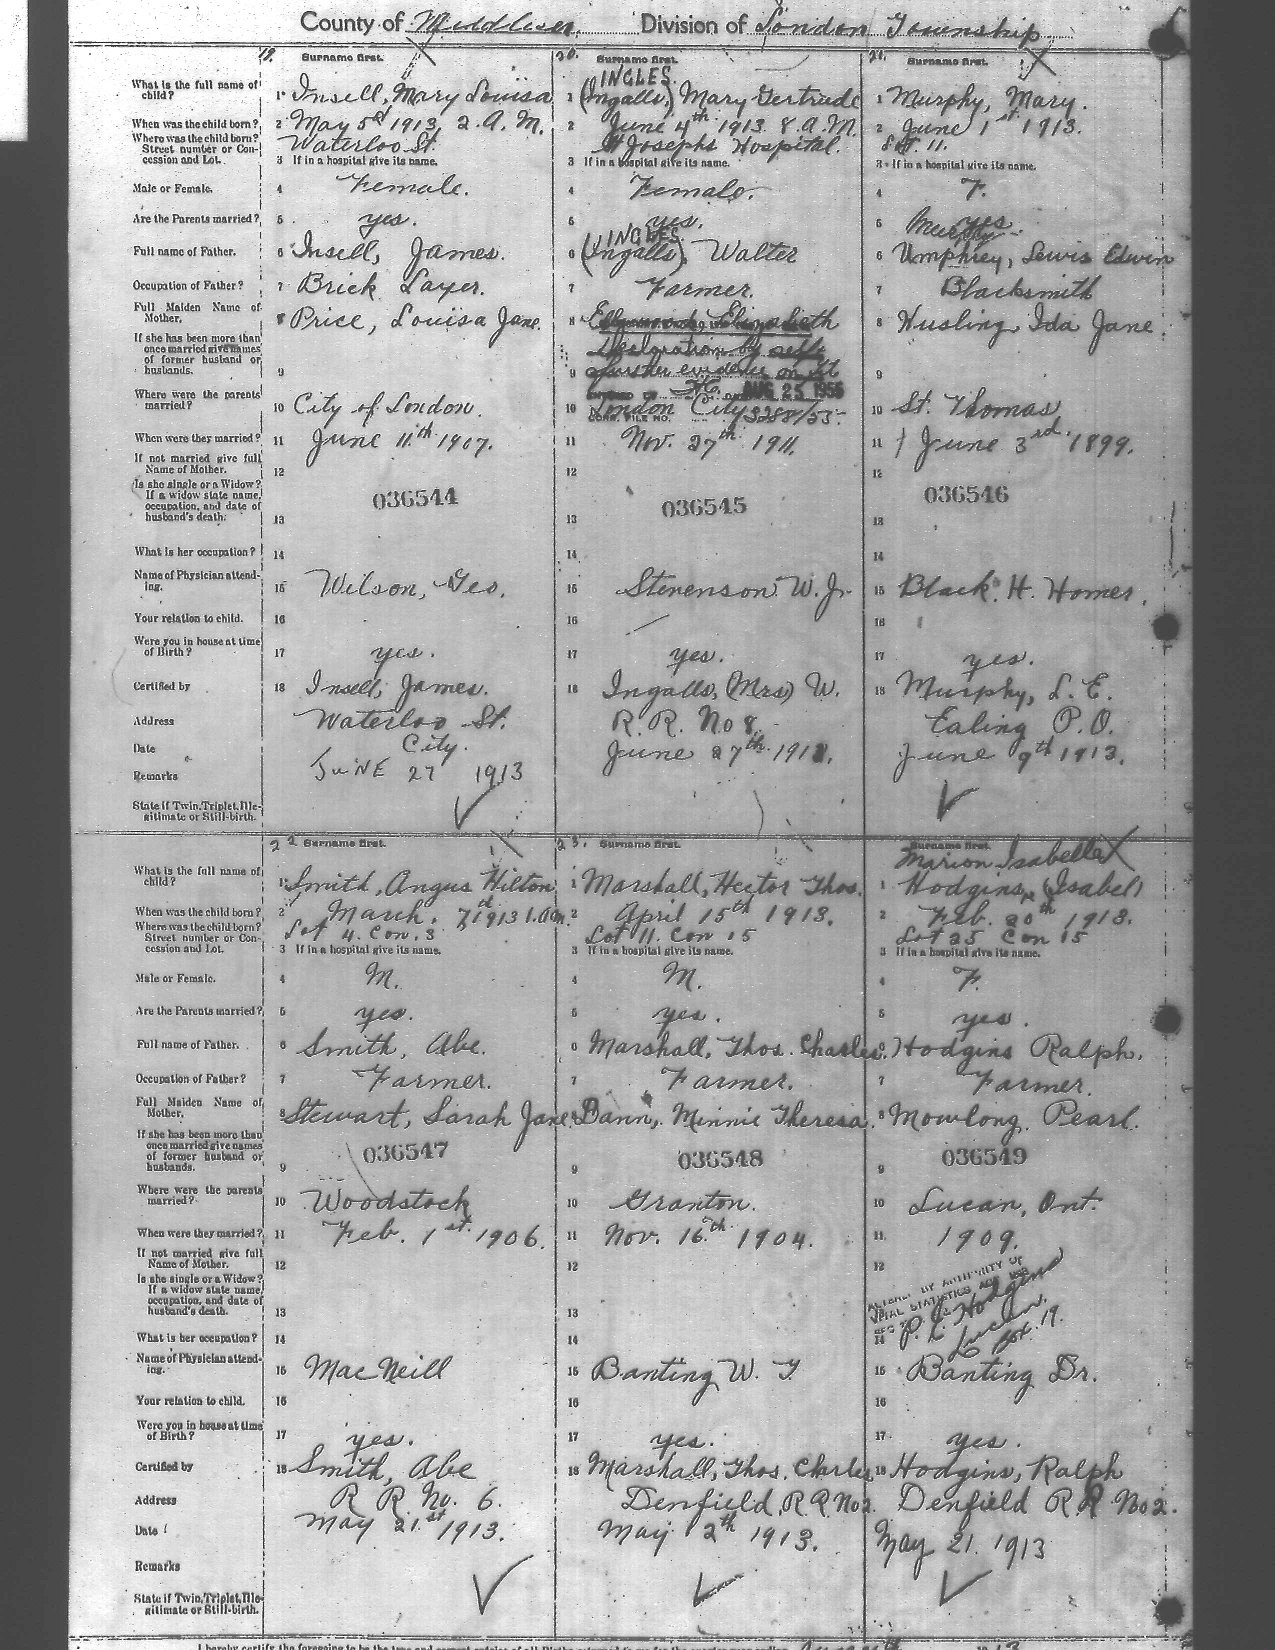 County of Middlesex. Division of London Township
19. Surname first. 20. Surname first. 21. Surname first.
What is the full name of child? 1 Insell, Mary Louisa 1 INGLES (Ingalls,) Mary Gertrude 1 Murphy, Mary.
When was the child born? 2 May 5th 1913, 2. A. M. 2 June 4th 1913 8. A. M. 2 June 1st 1913.
Where was the child born? Street number or Concession and Lot. Waterloo St. St Josephs Hospital. Lot 11.
3 If in a hospital give its name. 3 If in a hospital give its name. 3 If in a hospital give its name.
Male or Female. 4 Female. 4 Female. 4 F.
Are the Parents married? 5 yes. 5 yes. 5 yes
Full name of Father. 6 Insell, James. 6 INGLES (Ingalls), Walter 6 Murphy Umphrey, Lewis Edwin
Occupation of Father? 7 Brick Layer. 7 Farmer. 7 Blacksmith
Full Maiden Name of Mother. 8 Price, Louisa Jane. 8 Elizabeth 8 Husling Ida Jane.
If she has been more than once married give names of former husband or husbands. 9 9 further evidence on AUG 25 1955 9
Where were the parents married? 10 City of London. 10 London City 10 St. Thomas
When were they married? 11 June 11th 1907. 11 Nov. 27th 1911. 11 June 3rd 1899.
If not married give full Name of Mother. 12 12 12
Is she single or a Widow? If a widow state name, occupation, and date of husband's death. 13 036544 13 036545 13 036546
What is her occupation? 14 14 14
Name of Physician attending. 15 Wilson, Geo. 15 Stevenson W. J. 15 Black. H. Homer.
Your relation to child. 16 16 16
Were you in house at time of Birth? 17 yes. 17 yes. 17 yes.
Certified by 18 Insell, James. 18 Ingalls, (Mrs) W. 18 Murphy, L. E.
Address Waterloo St. City. R. R. No 8. Ealing P.O.
Date JUNE 27 1913 June 27th 1913. June 9th 1913.
Remarks
State if Twin, Triplet, Illegitimate or Still-birth.
22 Surname first. 23. Surname first. Surname first.
What is the full name of child? 1 Smith, Angus Hilton 1 Marshall, Hector Thos. 1 Marion Isabella Hodgins, (Isabel)
When was the child born? 2 March. 7th 1913 1. am. 2 April 15th 1913. 2 Feb. 20th 1913.
Where was the child born? Street number or Concession and Lot. Lot 4. Con. 3 Lot 11. Con 15 Lot 25 Con 15
3 If in a hospital give its name. 3 If in a hospital give its name. 3 If in a hospital give its name.
Male or Female. 4 M. 4 M. 4 F.
Are the Parents married? 5 yes. 5 yes. 5 yes.
Full name of Father. 6 Smith, Abe. 6 Marshall, Thos. Charles. 6 Hodgins Ralph.
Occupation of Father? 7 Farmer. 7 Farmer. 7 Farmer.
Full Maiden Name of Mother. 8 Stewart, Sarah Jane 8 Bann, Minnie Theresa. 8 Mowlong. Pearl.
If she has been more than once married give names of former husband or husbands. 9 036547 9 036548 9 036549
Where were the parents married? 10 Woodstock 10 Granton. 10 Lucan, Ont.
When were they married? 11 Feb. 1st 1906. 11 Nov. 16th 1904. 11 1909.
If not married give full Name of Mother. 12 12 12
Is she single or a Widow? If a widow state name, occupation, and date of husband's death. 13 13 BY AUTHORITY OF VITAL STATISTICS ACT
What is her occupation? 14 14 14 Hodgins Lucan, Box. 19.
Name of Physician attending. 15 MacNeill 15 Banting W. T 15 Banting Dr.
Your relation to child. 16 16 16
Were you in house at time of Birth? 17 yes. 17 yes. 17 yes.
Certified by 18 Smith, Abe 18 Marshall, Thos. Charles 18 Hodgins, Ralph
Address R R. No. 6. Denfield, R. R. No 2. Denfield R. R No 2.
Date May 21st 1913. May 12th 1913. May 21. 1913
Remarks
State if Twin, Triplet, Illegitimate or Still-birth.